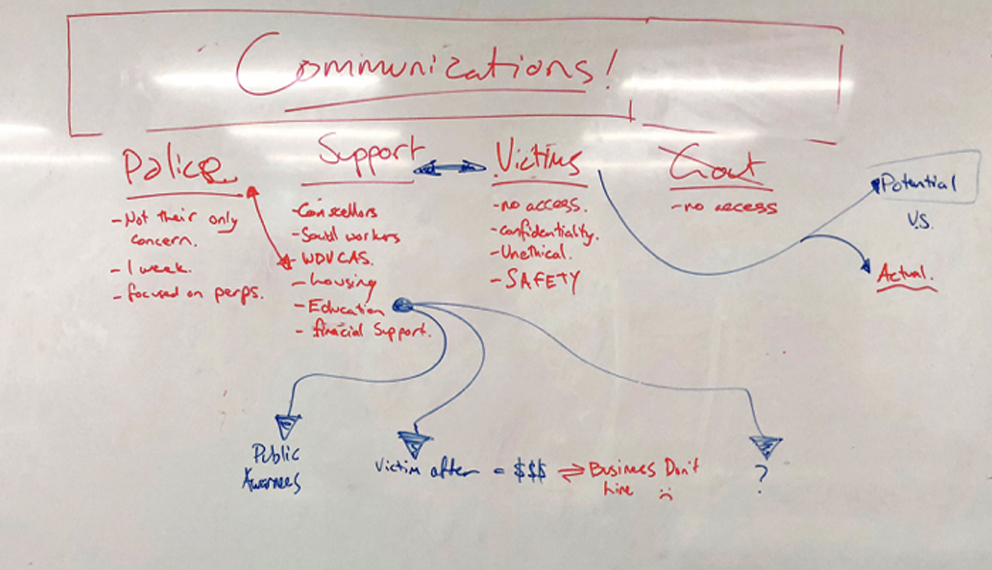 Communications!
Police
Support
Victims
Gout
- Not their only
concern.
- 1 week.
- focused on perps.
- Counsellors
- Social workers
- WDVCAS.
- housing
- Education
- finacial Support.
- no access.
- confidentiality.
- Unethical.
- SAFETY
- no access
Potential
V.S.
Actual.
Public
Awarnees
Victim after = $$$ ⇌ Business Don't
hire :(
?